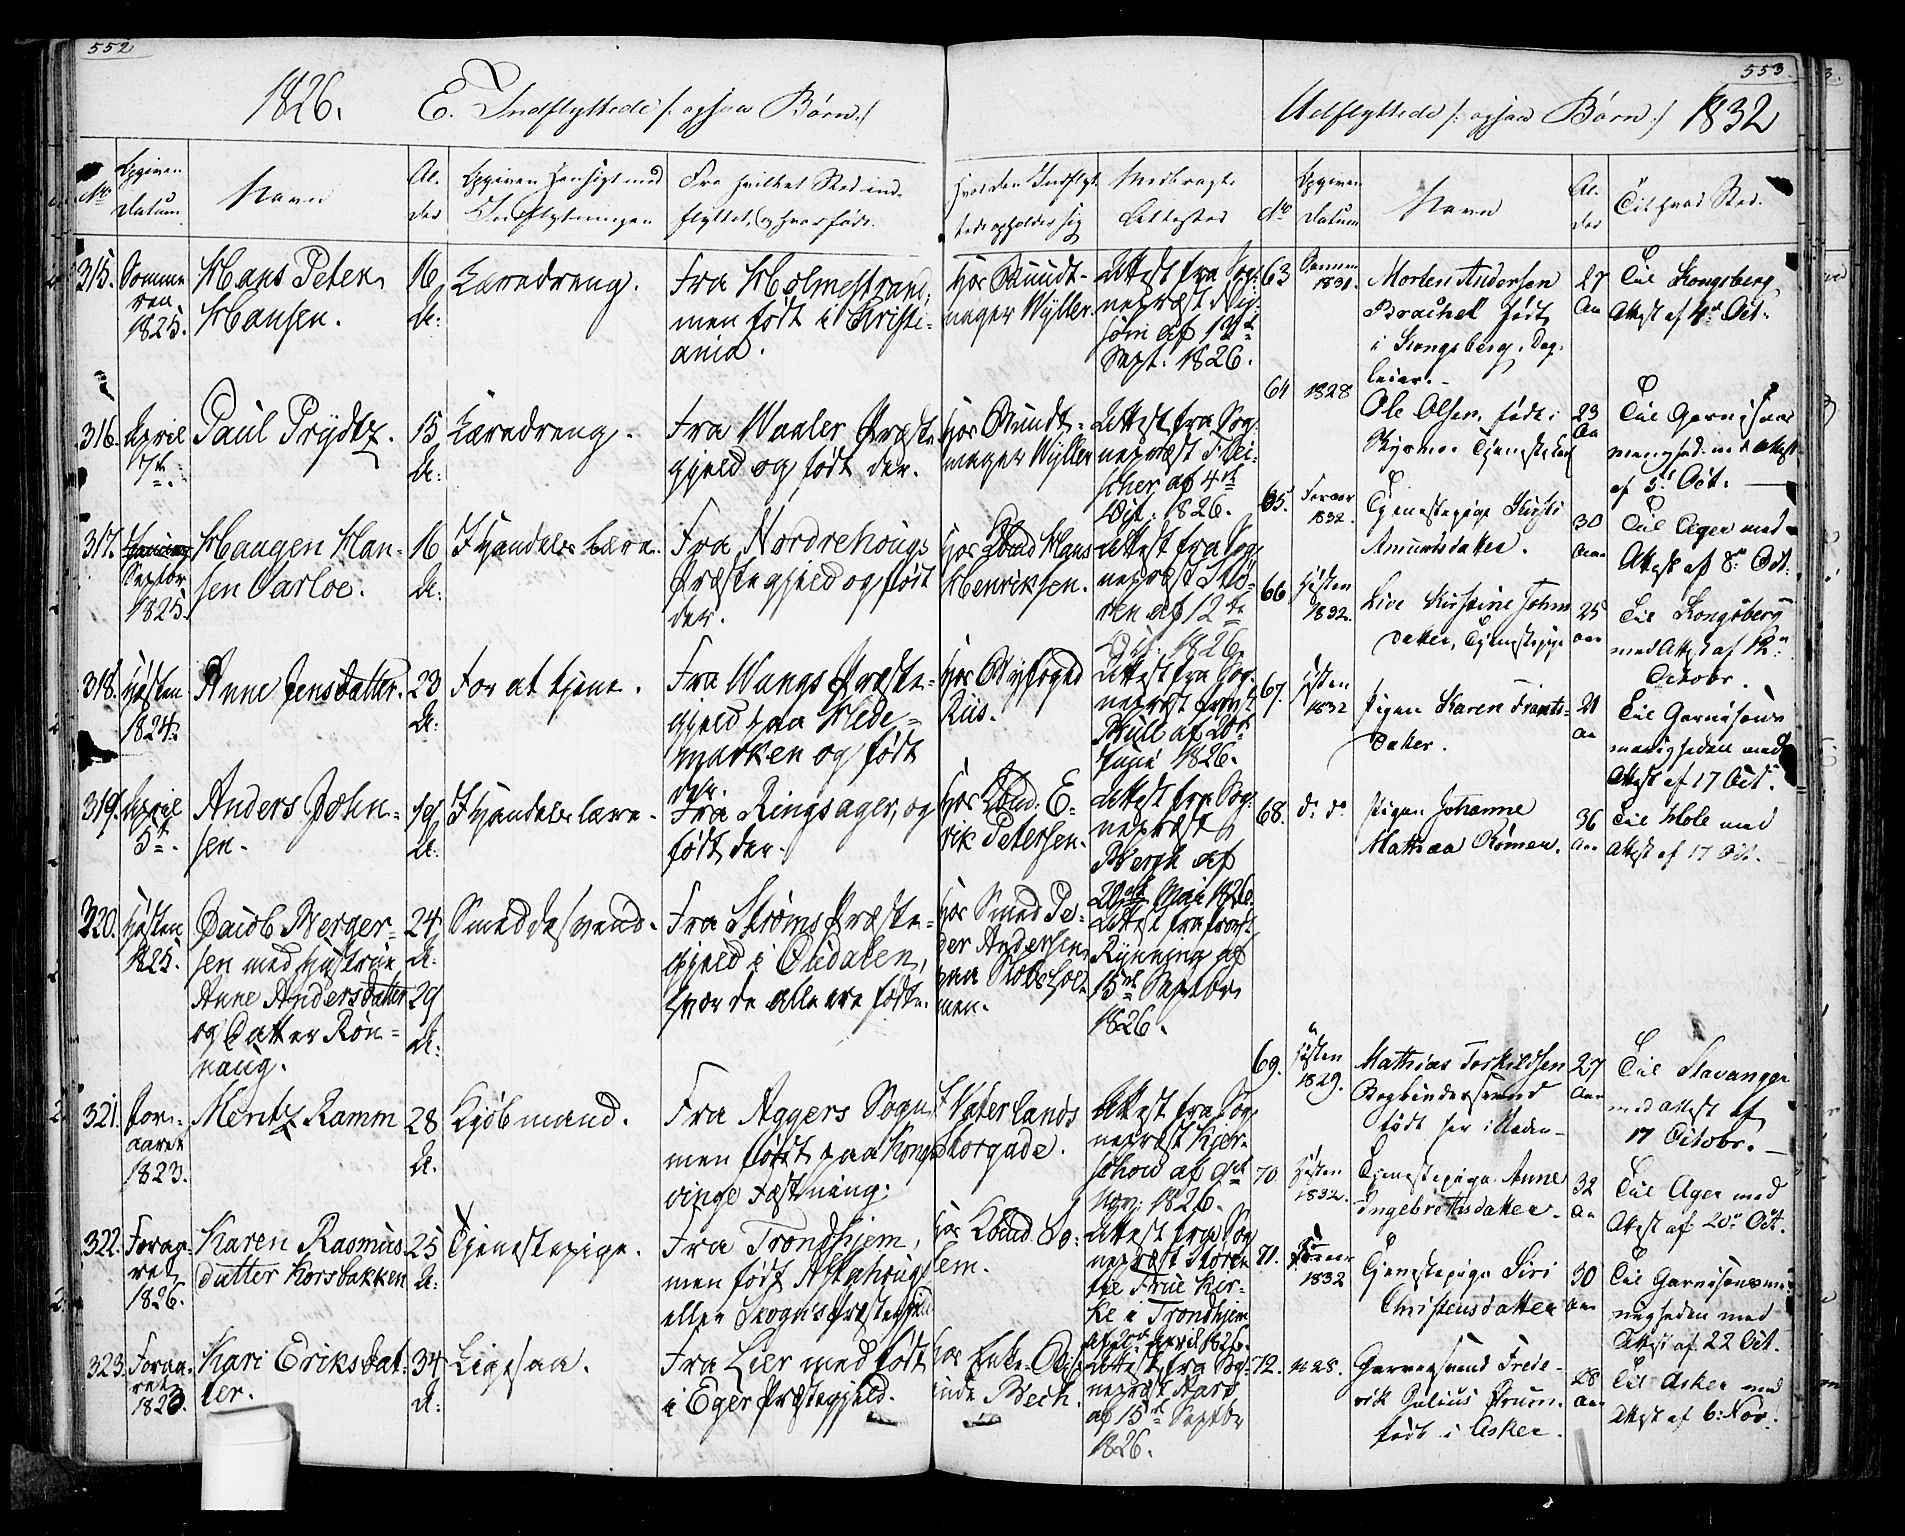 552
553
1826. E. Indflyttede /: ogsaa Børn :/
Udflyttede /: ogsaa Børn :/ 1832
No
Opgiven
Datum
Navn
Al-
der
Opgiven Hensigt med
Indflytningen
Fra hvilket Sted ind-
flyttet, og hvor født.
Hvor den Indflyt-
tede opholder sig
Medbragte
Attester
No
Opgiven
Datum
Navn
Al-
der
Til hvad Sted.
315.
Somme
ren
1825.
Hans Peter
Hansen.
16
A:
Læredreng.
Fra Holmestrand,
men født i Christi-
ania.
Hos Bundt-
mager Wyller.
Attest fra Sog-
nepræst
af 12te
Sept: 1826.
316.
April
17de
Paul Prydtz.
15
A:
Læredreng.
Fra Waaler Præste
gjeld og født der.
Hos Bundt-
mager Wyller
Attest fra Sog-
nepræst Flei-
scher af 4de
1826.
317.
Septbr
1825.
Haagen Han-
sen Oarloe.
16
A:
I Handels Lære.
Fra Nordrehougs
Præstegjeld og født
der.
Hos Kbmd Hans
Henriksen.
Attest fra Sog-
nepræst Stø-
ren af 12te
1826.
318.
Høsten
1824.
Anne Jensdatter.
23
A:
For at tjene.
Fra Wangs Præste-
gjeld paa Hede-
marken og født
der.
Hos Byfoged
Riis.
Attest fra Sog-
nepræst Provst
Bull af 20de
Juni 1826.
319.
April
5te
Anders John-
sen.
19
A:
I Handels lære.
Fra Ringsager, og
født der.
Hos Kbmd. E-
rik Petersen.
Attest fra Sog-
nepræst
Bergh af
20de Mai 1826.
320.
Høsten
1825.
Jacob Berger-
sen med Hustrue
Anne Andersdatter
og Datter Røn-
naug.
24
A:
29
A:
Smeddesvend.
Fra Strøms Præste-
gjeld i Odalen,
hvor de alle ere fødte.
Hos Smed Pe-
der Andersen
paa Klobshol-
men.
Attest fra Provst
Rynning af
15de Septbr
1826.
321.
For-
aaret
1823.
Mentz Ramm
28
A.
Kjøbmand.
Fra Aggers Sogn,
men født paa Kongs-
vinge Fæstning.
I Vaterlands
Storgade.
Attest fra Sog-
nepræst Kjer-
schow af 9de
Nov: 1826.
322.
Foraa-
ret
1826.
Karen Rasmus-
datter Korsbakken
25
A:
Tjenestepige.
Fra Trondhjem,
men født Alstahoug
eller Skogns Præstegjeld
Hos Kbmd. Bo-
lem.
Attest fra Sog-
nepræst Støren
til Frue Kir-
ke i Trondhjem
April 1826.
323.
Foraa-
ret
1823
Kari Eriksdat-
ter.
34
A:
Ligesaa.
Fra Lier med født
i Eger Præstegjeld.
Hos Enke
Bech.
Attest fra Sog-
nepræst Aars
af 15de Septbr
1826.
63
1831.
Morten Andersen
Brachel født
i Kongsberg, Dag-
leier.
27
Aar
Til Kongsberg,
Attest af 4de Oct.
64
1828
Ole Olsen, født i
Tjenestekarl
23
Aar
Til Garnisons
menighed med Attest
af 5t Oct.
65.
Foraar
1832.
Tjenestepige Kirsti
Amundsdatter.
30
Aar
Til Eger med
Attest af 8de Oct.
66
Høsten
1832.
Live Kirstine Johns
datter, Tjenestepige
25
aar
Til Kongsberg
med Attest af 12te
Octobr.
67.
Høsten
1832
Pigen Karen Frants-
datter.
21
aar
Til Garnisons
menigheden med
Attest af 17 Oct.
68.
do do
Pigen Johanne
Mathea Rømer.
36
Aar
Til Hole med
Attest af 17 Oct.
69.
Høsten
1829.
Mathias Torkildsen
Bogbindersvend
født her i Staden
27
Aar
Til Stavanger
med Attest af
17 Octobr.
70
Høsten
1832.
Tjenestepige Anne
Ingebretsdatter
32
Aar
Til Eger med
Attest af 20de Oct.
71.
1832
Tjenestepige Siri
Christensdatter
30
Aar
Til Garnisonsme-
nigheden med
Attest af 22 Oct.
72.
Garversvend Frede-
rik Julius Brum.
født i Asker.
28
Aar
Til Asker med
Attest af 6: Nov.